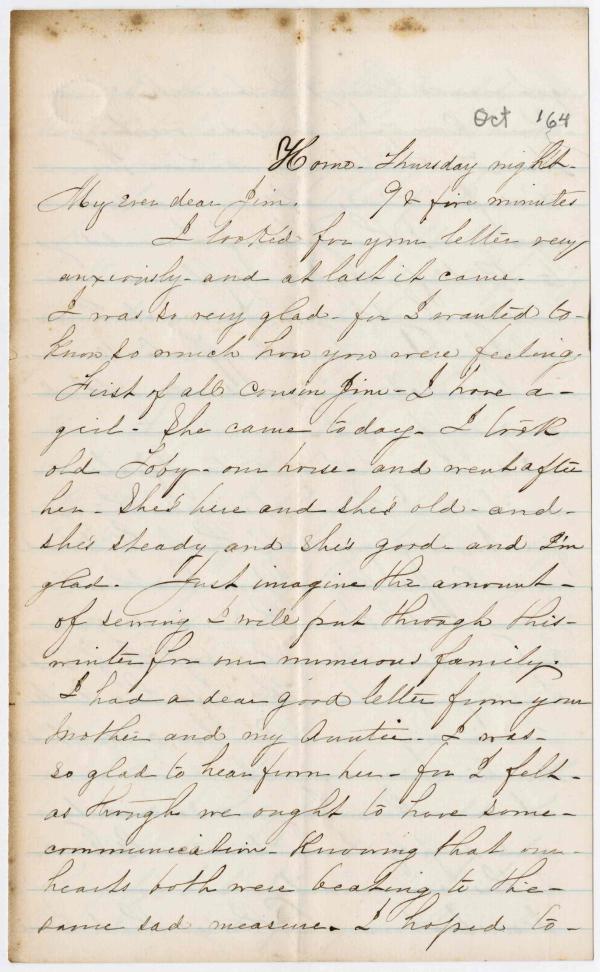 Oct '64
Home. Thursday night.
My ever dear Jim. 9 & five minutes
I looked for your letter very
anxiously - and at last it came.
I was so very glad - for I wanted to -
know so much how you were feeling.
First of all cousin Jim - I have a -
girl - She came today - I took
old Toby - our horse - and went after
her - She's here and she's old - and -
she's steady and she's good - and I'm
glad. Just imagine the amount -
of sewing I will put through this -
winter for our numerous family.
I had a dear good letter from your
Mother and my Auntie - I was -
so glad to hear from her - for I felt -
as though we ought to have some -
communication - Knowing that our -
hearts both were beating to the -
same sad measure. I hoped to -